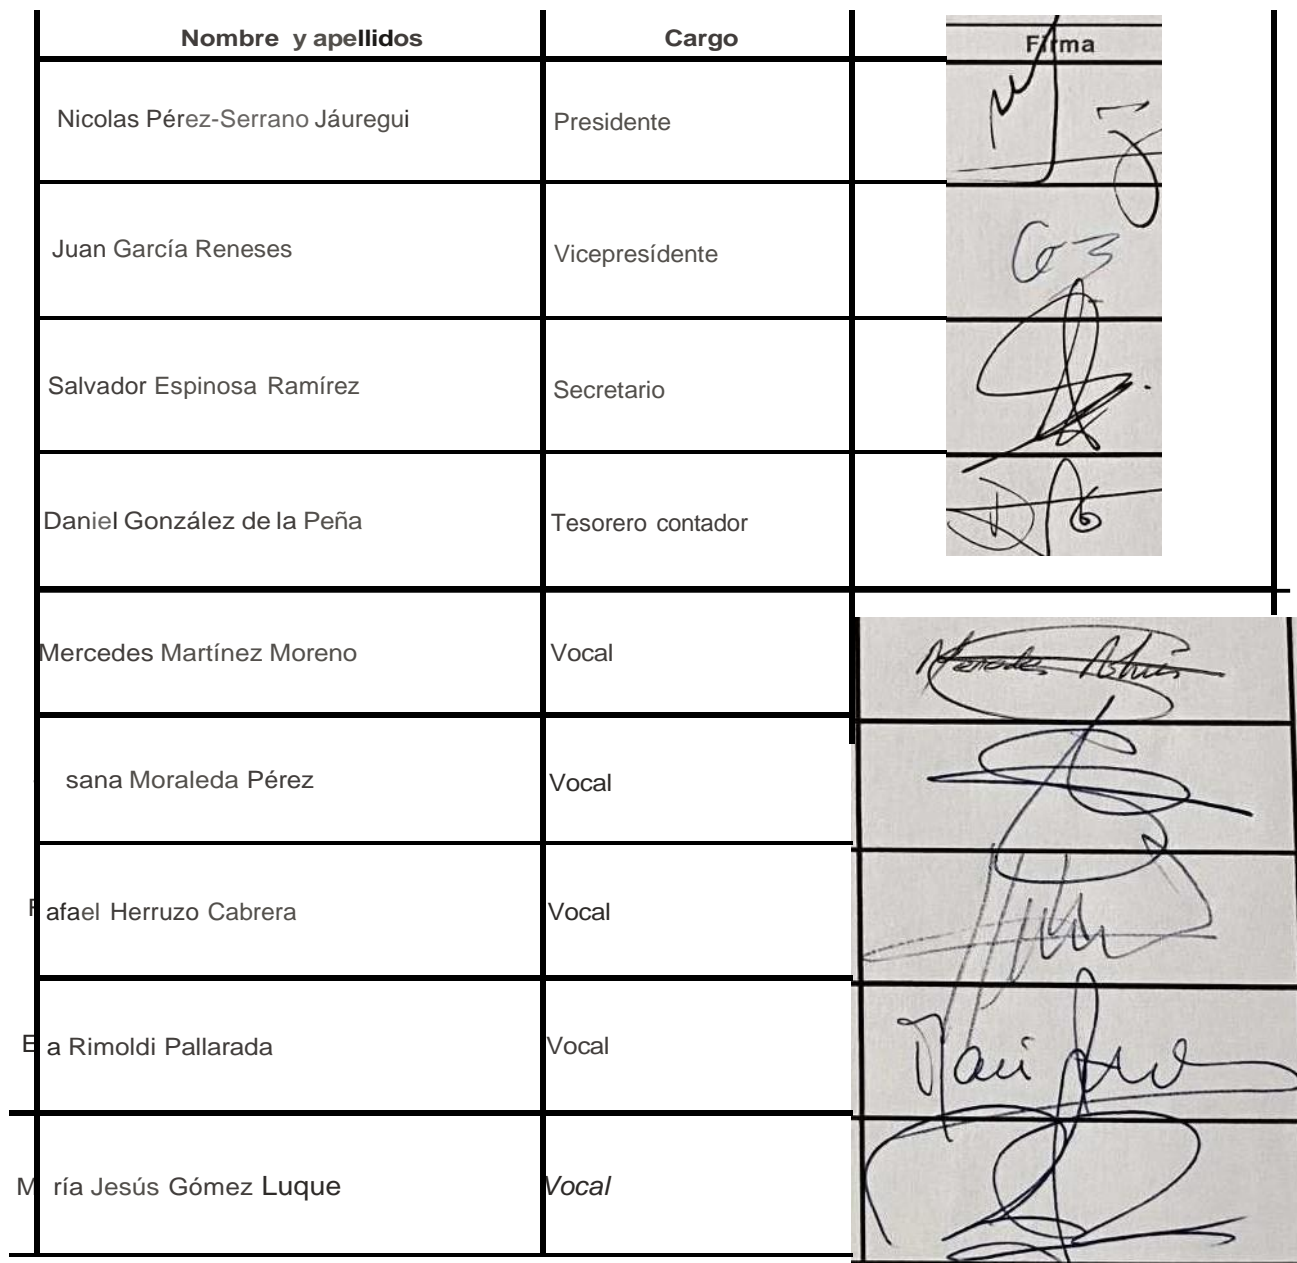 Nombre y apellidos Cargo Firma
Nicolas Pérez-Serrano Jáuregui Presidente
Juan García Reneses Vicepresídente
Salvador Espinosa Ramírez Secretario
Daniel González de la Peña Tesorero contador
Mercedes Martínez Moreno Vocal
sana Moraleda Pérez Vocal
afael Herruzo Cabrera Vocal
E a Rimoldi Pallarada Vocal
M ría Jesús Gómez Luque Vocal